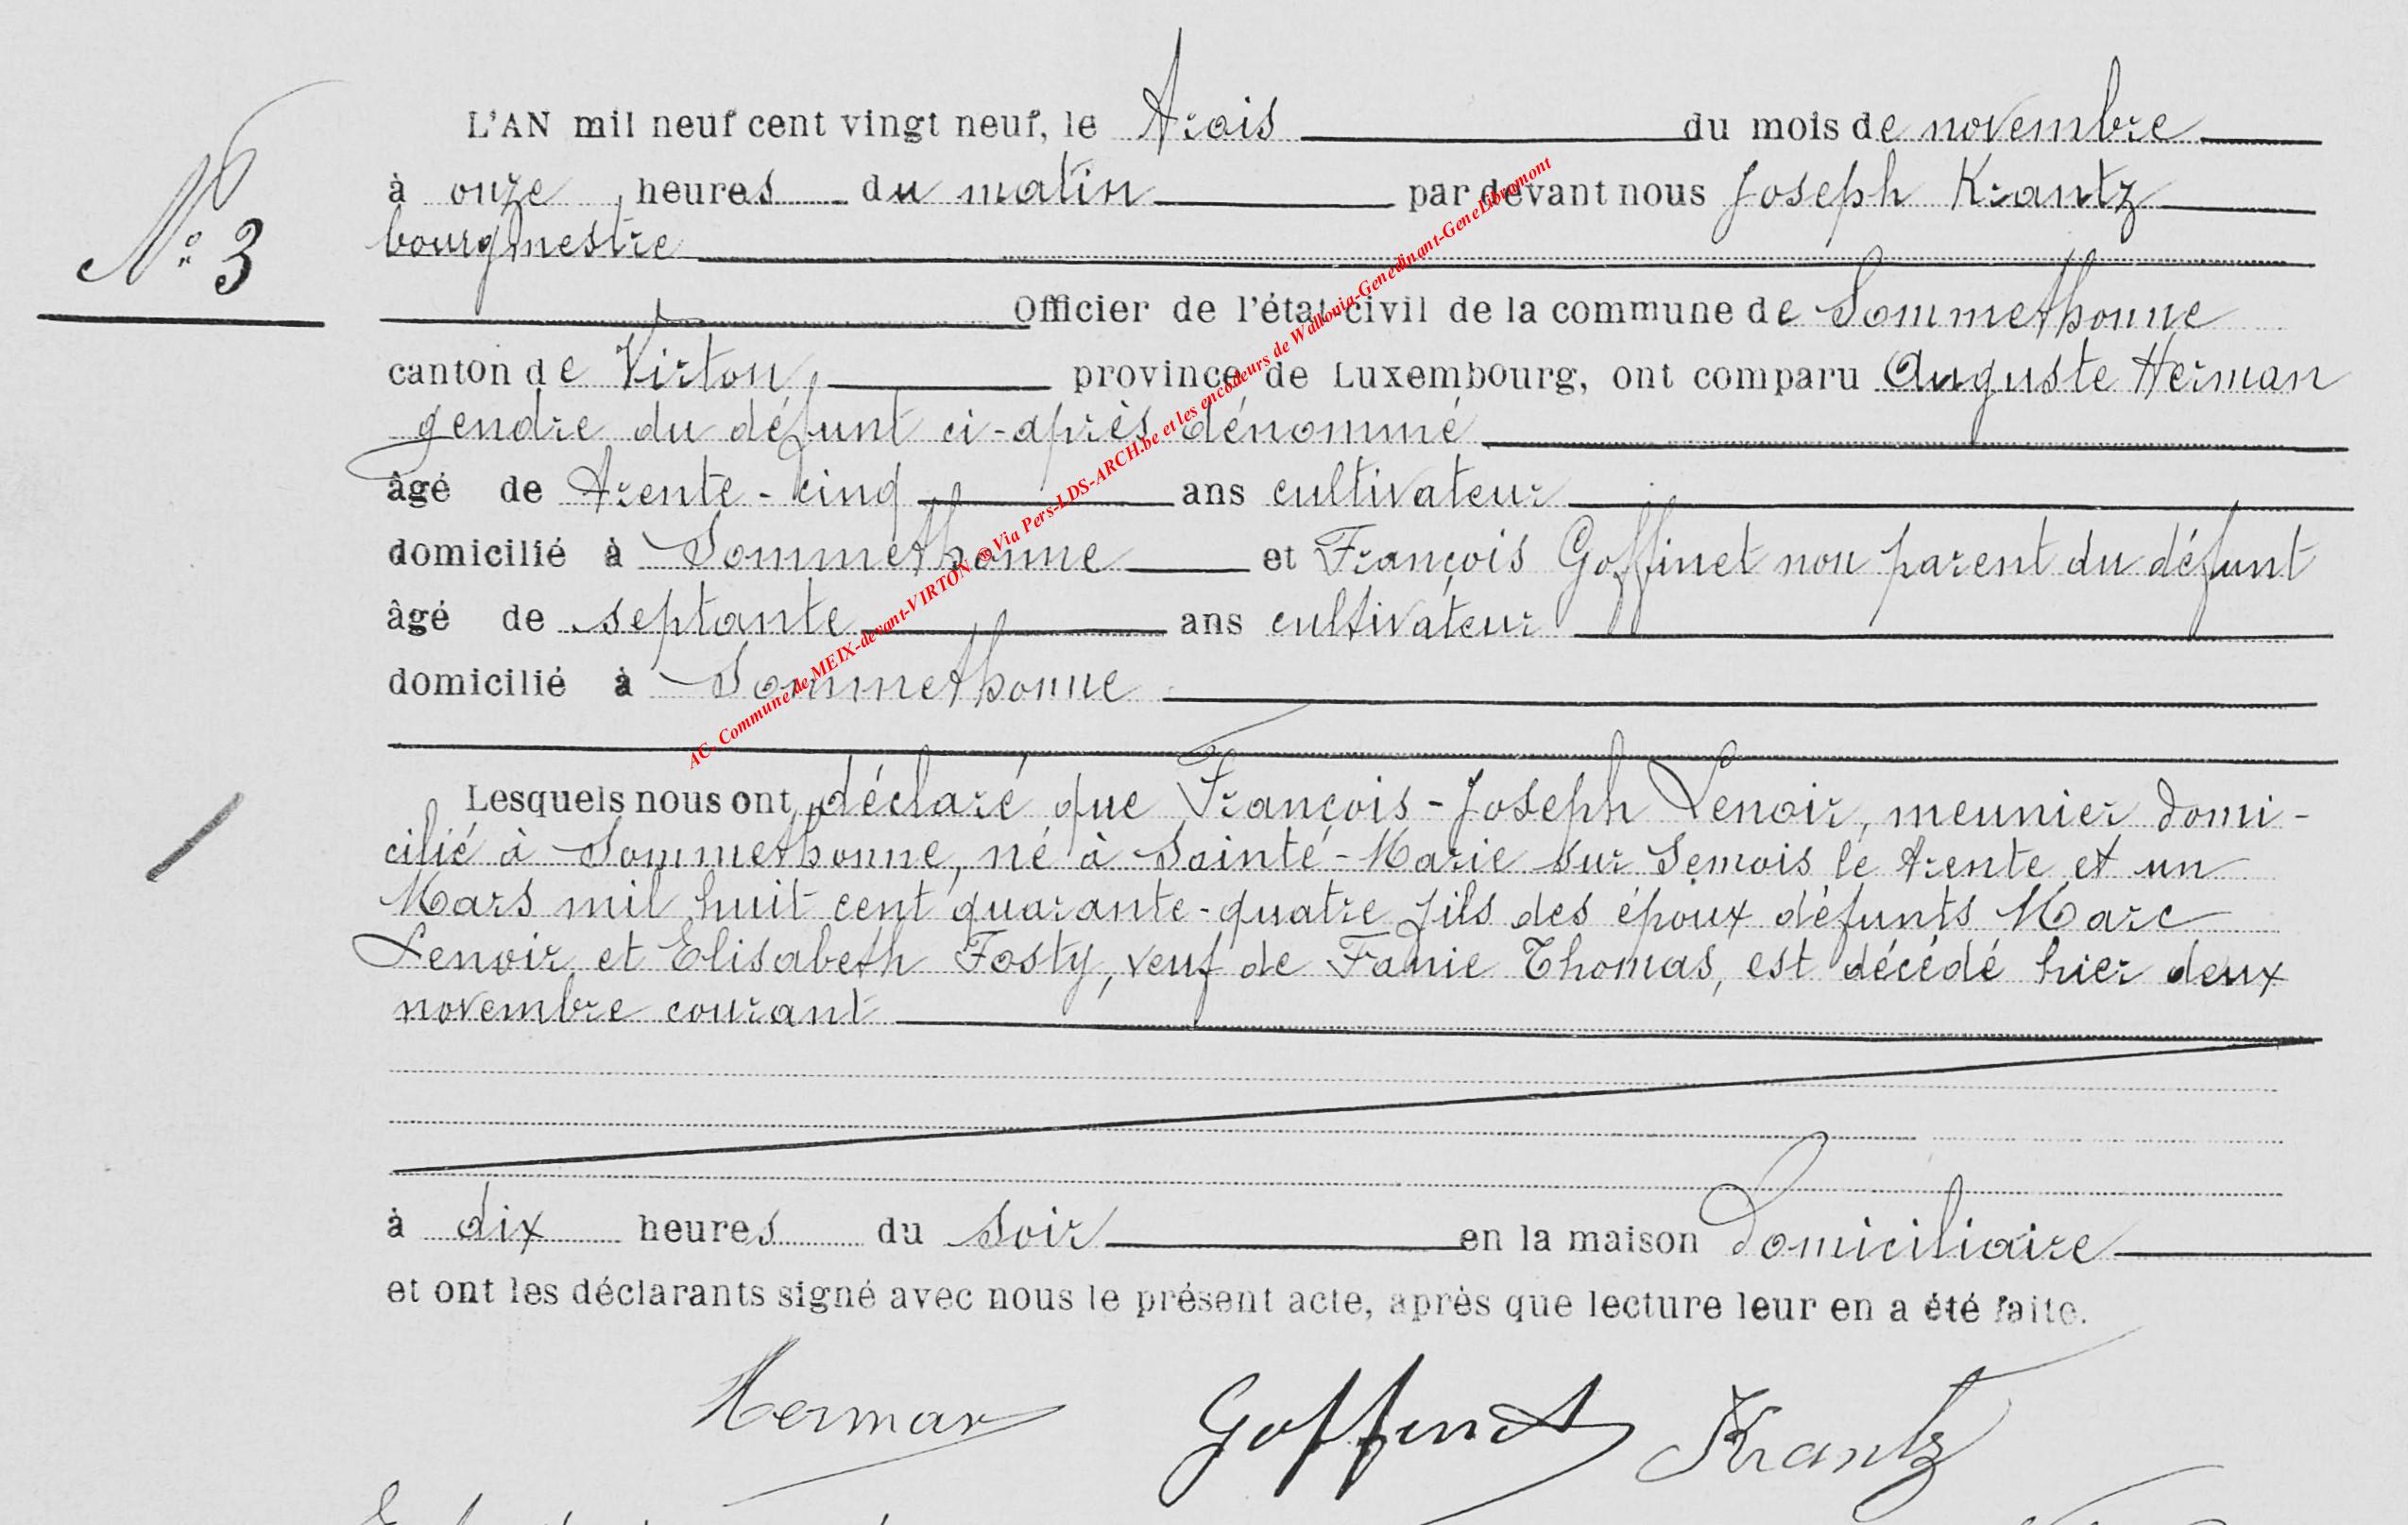 N° 3
L'AN mil neuf cent vingt neuf, le trois du mois de novembre
à onze heures du matin par devant nous Joseph Krantz
bourgmestre
Officier de l'état civil de la commune de Sommethonne
canton de Virton, province de Luxembourg, ont comparu Auguste Herman
gendre du défunt ci-après dénommé
âgé de trente-cinq ans cultivateur
domicilié à Sommethonne et François Goffinet non parent du défunt
âgé de septante ans cultivateur
domicilié à Sommethonne
Lesquels nous ont déclaré que François-Joseph Lenoir, meunier domi-
cilié à Sommethonne, né à Sainte-Marie sur Semois le trente et un
Mars mil huit cent quarante-quatre fils des époux défunts Marc
Lenoir et Elisabeth Fosty, veuf de Fanie Thomas, est décédé hier deux
novembre courant
à dix heures du soir en la maison domiciliaire
et ont les déclarants signé avec nous le présent acte, après que lecture leur en a été faite.
Herman Goffinet Krantz
AC- Commune de MEIX-devant-VIRTON ® Via Pers-LDS-ARCH.be et les encodeurs de Wallonia-Genedinant-GeneLibramont